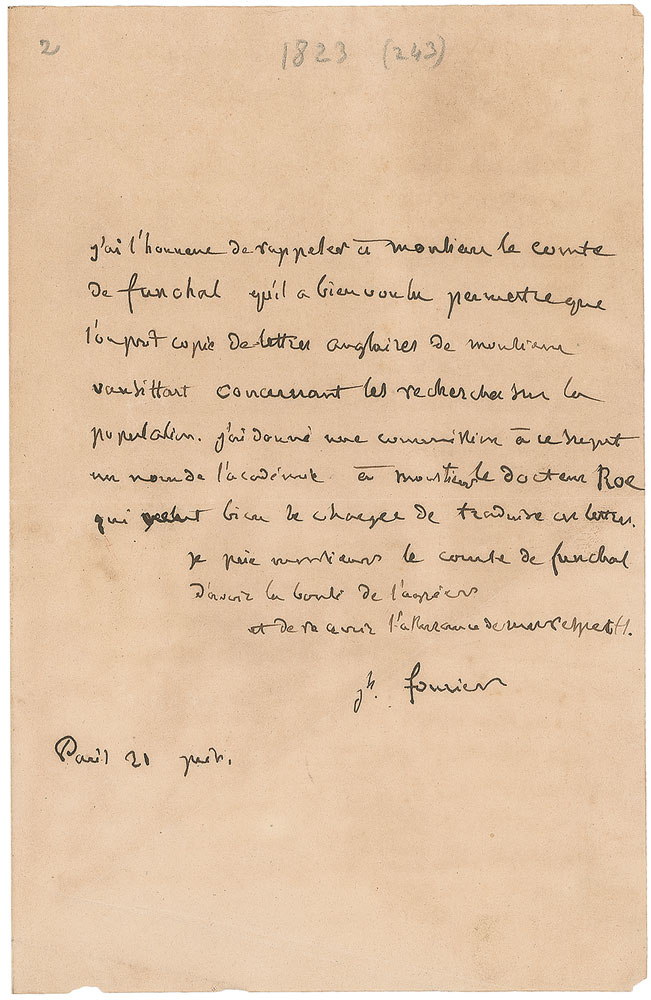 2 1823 (243)
j'ai l'honneur de rappeler à monsieur le comte
de funchal qu'il a bien voulu permettre que
l'on prît copie de lettres anglaises de monsieur
vansittart concernant les recherches sur la
population. j'ai donné une commission à ce sujet
au nom de l'académie à monsieur le docteur Roe
qui veut bien se charger de traduire ces lettres.
je prie monsieur le comte de funchal
d'avoir la bonté de l'agréer
et de recevoir l'assurance de mes respects.
jh. fourier
Paris 21